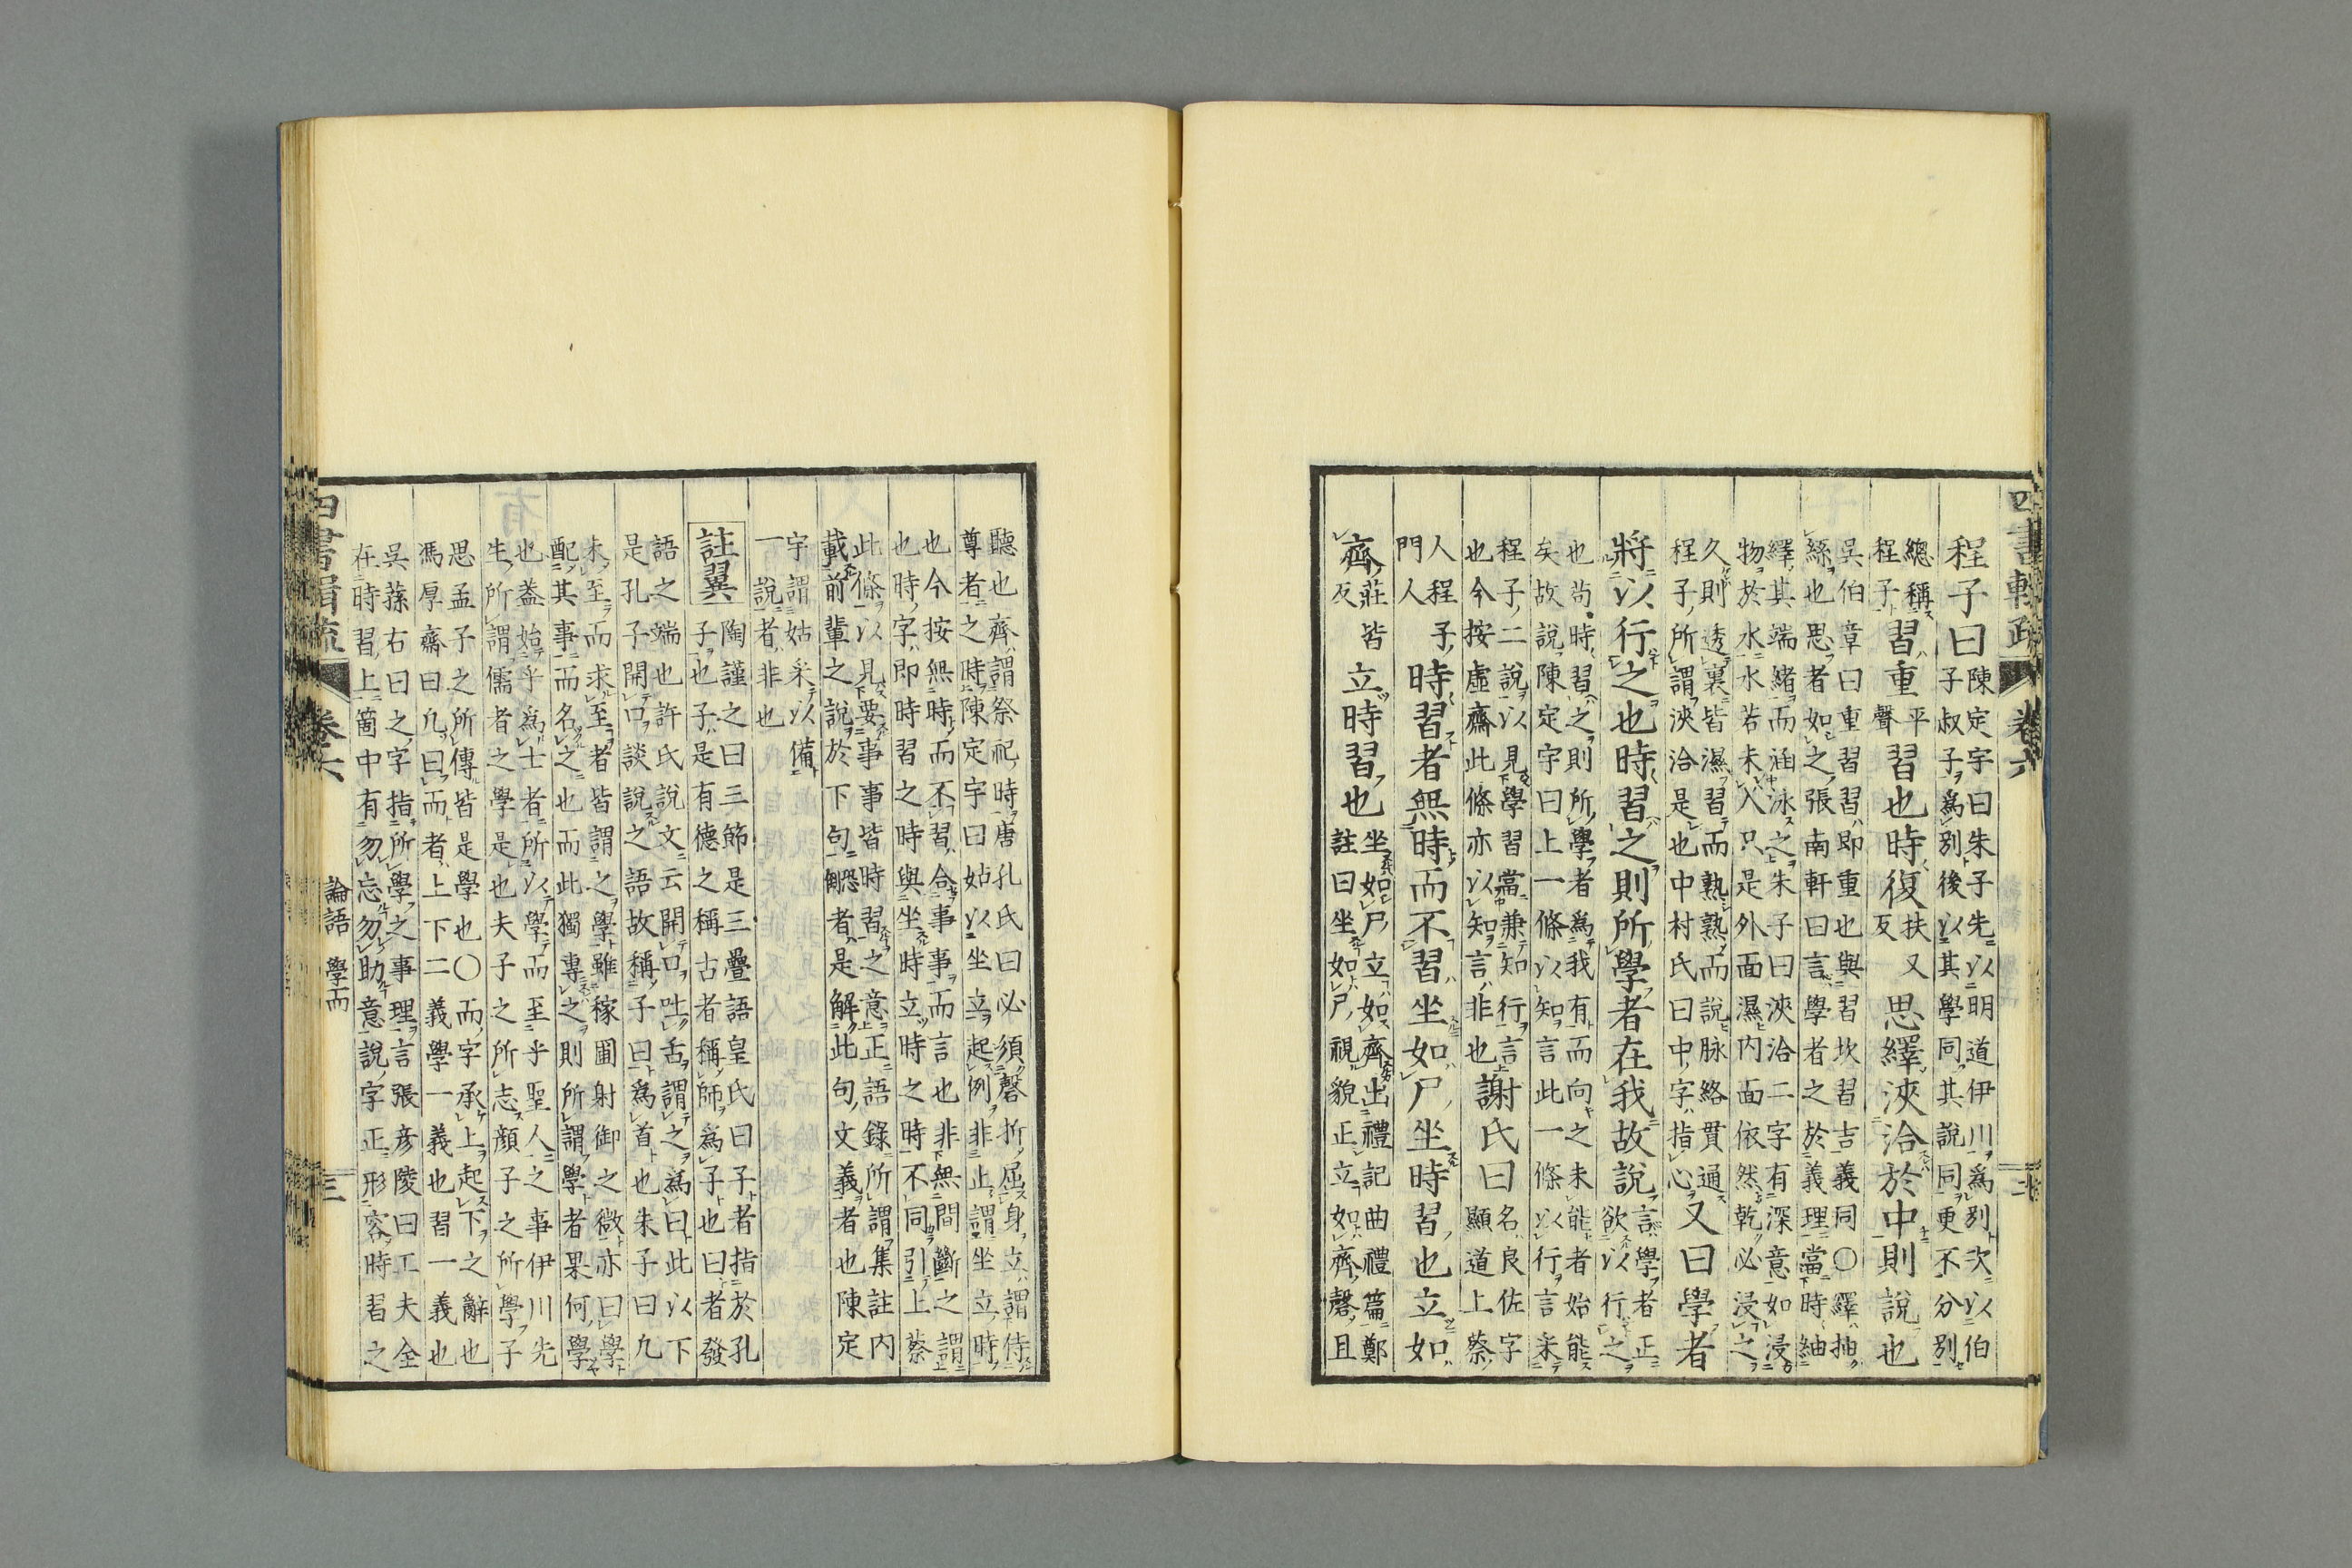 四書輯疏 卷六
程子曰陳定宇曰朱子先以明道伊川爲別次以伯
子叔子爲別後以其學同其說同更不分別
總稱程子習重平聲習也時復扶又反思繹浹洽於中則說也
吳伯章曰重習習即重也與習坎習吉義同〇繹抽
絲也思者如之張南軒曰言學者之於義理當時紬
繹其端緒而涵泳之朱子曰浹洽二字有深意如浸
物於水水若未入只是外面濕內面依然乾必浸之
久則透裏皆濕習而熟熟而說脉絡貫通
程子所謂浹洽是也中村氏曰中字指心又曰學者
將以行之也時習之則所學者在我故說言學者正欲以行之
也苟時習之則所學者爲我有而向之未能者始能
矣故說陳定宇曰上一條以知言此一條以行言采
程子二說以見學習當兼知行言
也今按虛齋此條亦以知言非也謝氏曰名良佐字顯道上蔡
人程子門人時習者無時而不習坐如尸坐時習也立如
齊莊皆反立時習也坐如尸立如齊出禮記曲禮篇鄭
註曰坐如尸視貌正立如齊磬且
聽也齊謂祭祀時唐孔氏曰必須磬折屈身立謂侍
尊者之時陳定宇曰姑以坐立起例非止謂坐立時
也今按無時而不習合事事而言也非無間斷之謂
也時字即時習之時與坐時立時之時不同引上蔡
此條以見要事事皆時習之意正語錄所謂集註內
載前輩之說於下句解者是解此句文義者也陳定
宇謂姑采以備
一說者非也
註翼陶謹之曰三節是三疊語皇氏曰子者指於孔
子也子是有德之稱古者稱師爲子也曰者發
語之端也許氏說文云開口吐舌謂之爲曰此以下
是孔子開口談說之語故稱子曰爲首也朱子曰凡
未至而求至者皆謂之學雖稼圃射御之微亦曰學
配其事而名之也而此獨專之則所謂學者果何學
也蓋始乎爲士者所以學而至乎聖人之事伊川先
生所謂儒者之學是也夫子之所志顏子之所學子
思孟子之所傳皆是學也〇而字承上起下之辭也
馮厚齋曰凡曰而者上下二義學一義也習一義也
吳蓀右曰之字指所學之事理言張彥陵曰工夫全
在時習上箇中有勿忘勿助意說字正形容時習之
四書輯疏 卷六 論語 學而 三